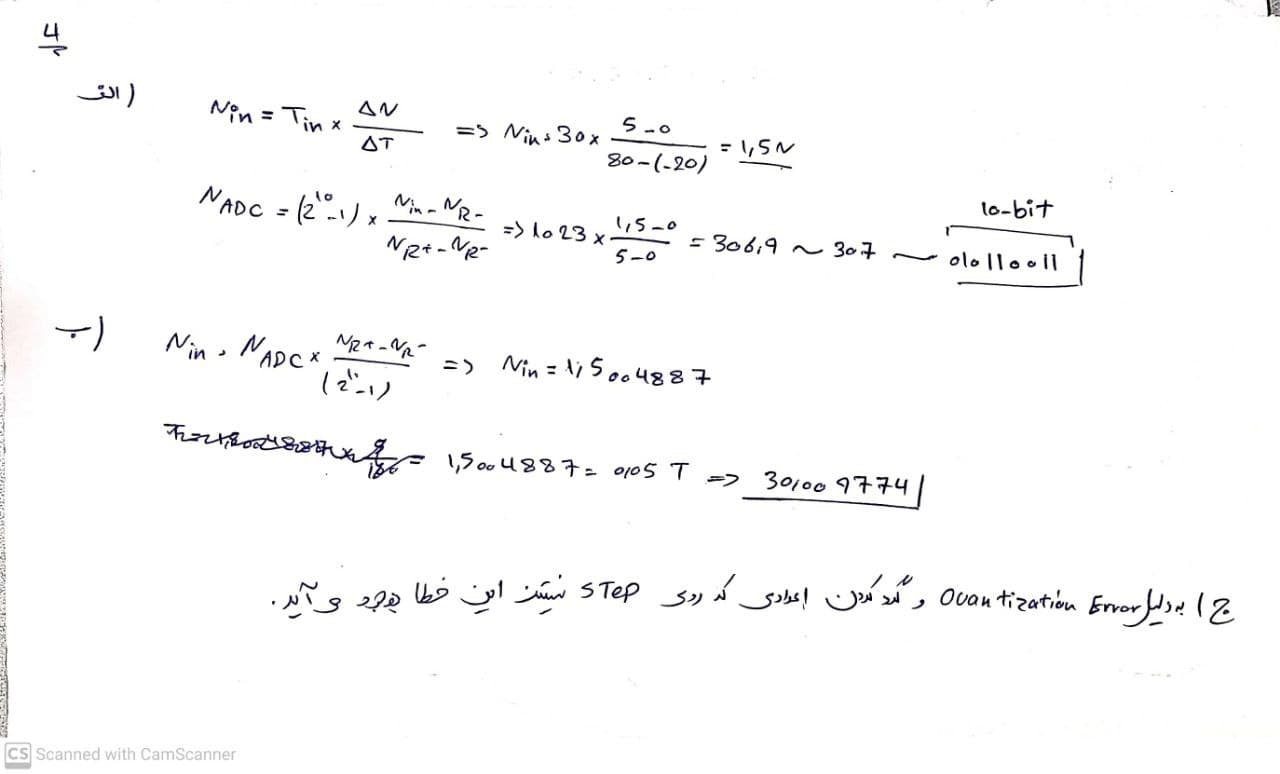 4
الف)
Nin = Tin × ΔN/ΔT => Nin = 30 × (5-0)/(80-(-20)) = 1,5N
NADC = (2^10-1) × (Nin - NR-)/(NR+ - NR-) => 1023 × (1,5-0)/(5-0) = 306,9 ~ 307 ~ 0101100 11
10-bit
ب)
Nin = NADC × (NR+ - NR-)/(2^10-1) => Nin = 1,5004887
= 1,5004887 = 0,05 T => 30,009774
ج) به دلیل Quantization Error و گرد کردن اعدادی که روی STEP نیستن این خطا بوجود می آید.
CS Scanned with CamScanner